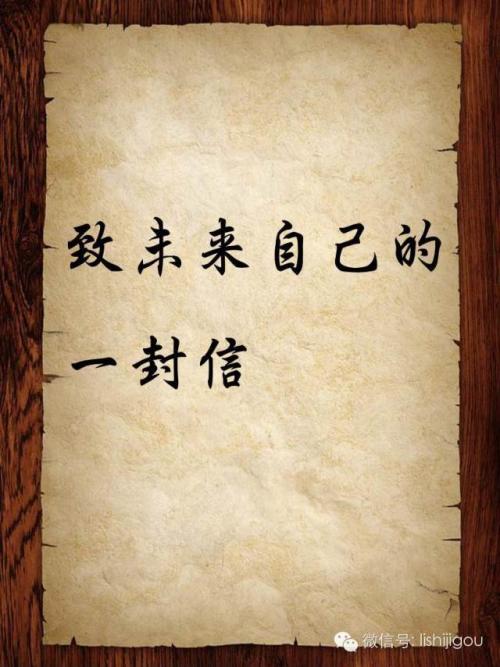 致未来自己的
一封信
微信号: lishijigou